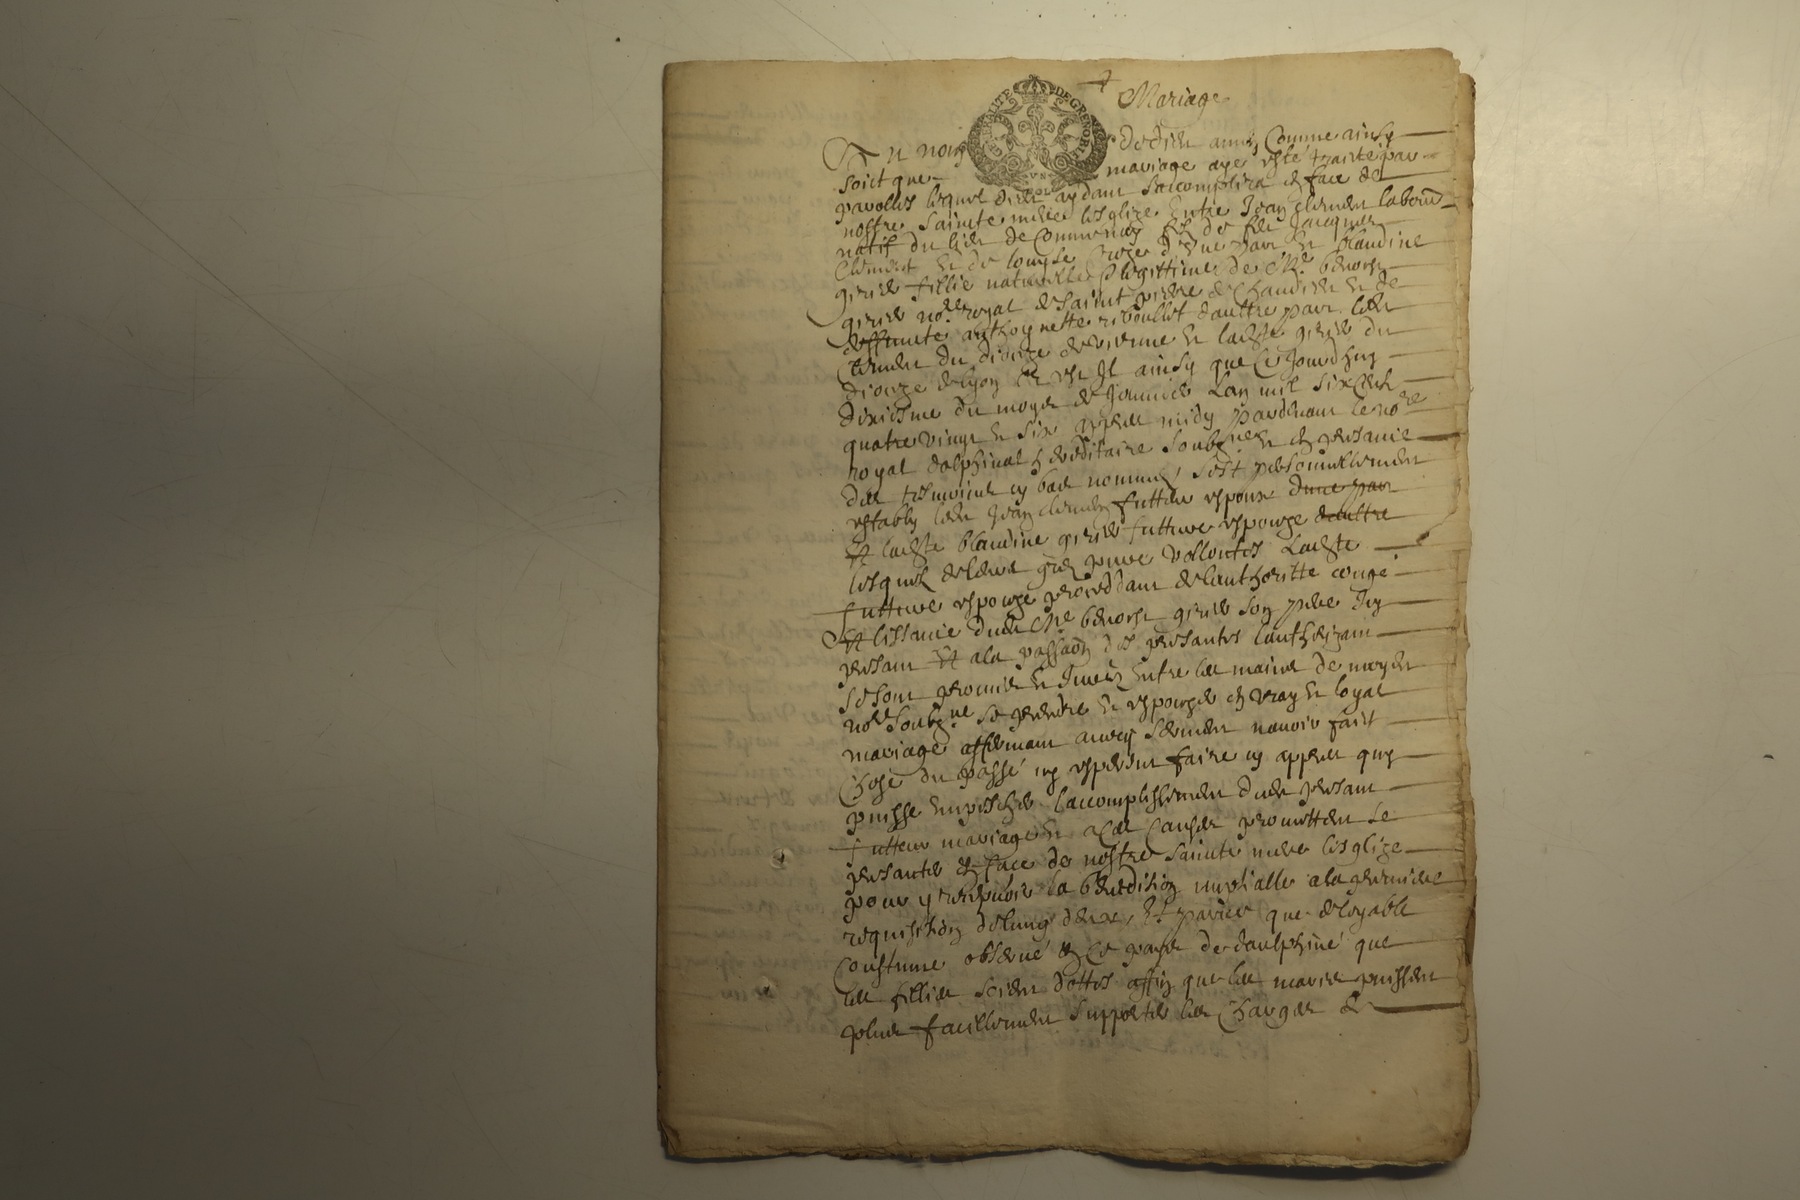 Mariage
GENERALITE DE GRENOBLE
VN SOL
Au nom de Dieu amen, Comme ainsy
soict que mariage aye esté traité par
parolles lequel dieu aydant saccomplira en face de
nostre sainte mere lesglize Entre Jean Clement labour
natif du lieu de Communay filz de feu Jacques
Clement et de Louyse d'une part et blandine
girie fillie naturelle & legittime de Me benoist
girie nore royal de saint pierre de Chandieu et de
deffuncte anthoynette riboullet daultre part ledt
Clement du dioceze de vienne et ladste girie du
dioceze de lyon Et est Il ainsy que Ce jourdhuy
dixiesme du moys de Janvier Lan mil six Cent
quatre vingt et six appres midy pardevant le nore
royal dalphinal hereditaire soubzne et en presance
des tesmoins cy bas nommes sest personnellement
estably ledt Jean Clement futteur espoux dune part
Et ladste blandine girie future espouze daultre
lesquelz de leurs grez pures vollontes Ladste
future espouze proceddant de lauthoritte conge
Et lissance dudt Me benoist girie son pere Icy
present Et a la passaon des presantes lauthorizant
se sont promis et Jures Entre les mains de moyde
nore soubzne se prendre et espouzer en vray et loyal
mariage affermant avecq serment navoir faict
Chose du passé ny esperent faire cy appres quy
puisse empescher laccomplissement dudt presant
futteur mariage et a ces causes promettent se
presanter en face de nostre sainte mere lesglize
pour y recepvoir la benedition nuptialle a la premiere
requisition de lung deux, Et parce que de loyable
Coustume observé en Ce pays de daulphiné que
les fillies soient dottes affin que les maris puissent
plus facillement supporter les Charges de